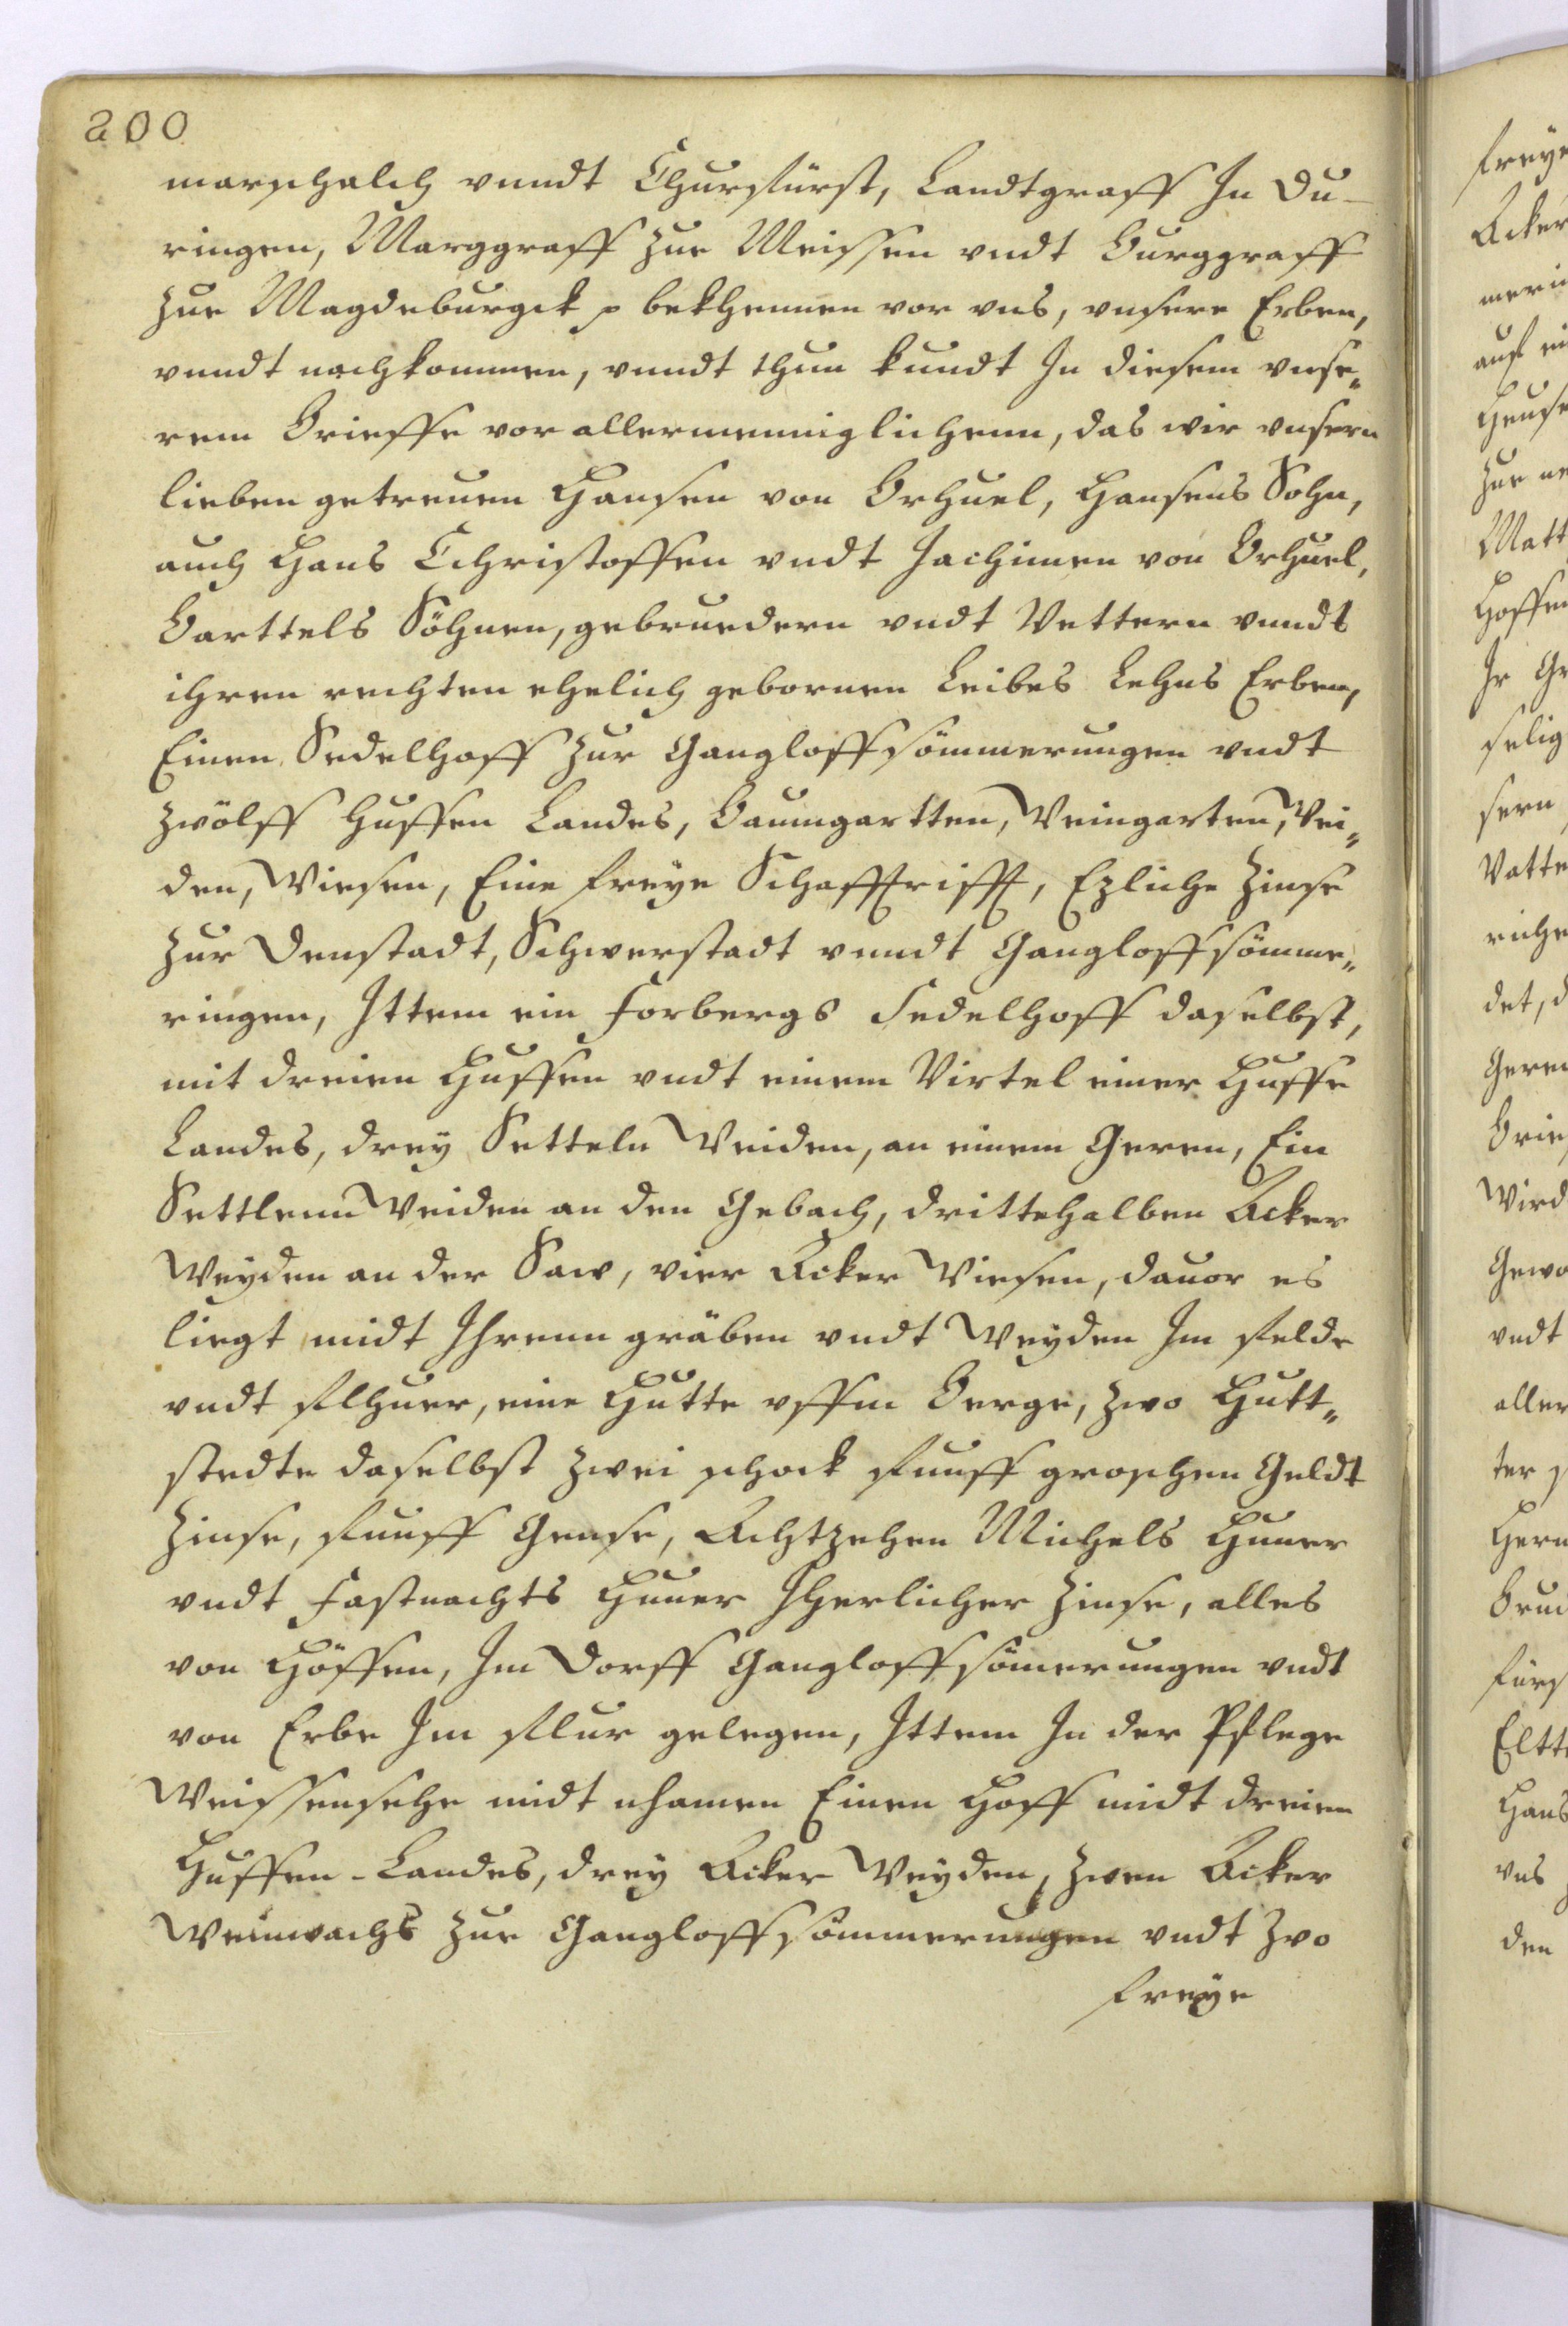 200
marschalch vnndt Churfürst, Landtgraff In Du-
ringen, Marggraff zue Meissen vndt Burggraff
zue Magdeburgck p bekhennen vor vns, vnsere Erben,
vnndt nachkommen, vnndt thun kundt In diesem vnse„
rem Brieffe vor allermenniglichenn, das wir vnsern
lieben getreuen Hansen von Brhuel, Hansens Sohn,
auch Hans Christoffen vndt Jachimen von Brhuel,
Barttels Söhnen, gebruedern vndt Vettern vnndt
ihren rechten ehelich gebornen Leibes Lehns Erben,
Einen Sedelhoff zur Gangloffsömmerungen vndt
zwölff Huffen Landes, Baumgartten, Weingarten, Wei„
den, Wiesen, Eine freye Schafftrifft, Ezliche Zinse
zur Denstadt, Schwerstadt vnndt Gangloffsömme„
ringen, Ittem ein Forbergs Sedelhoff daselbst,
mit dreien Huffen vndt einem Virtel einer Huffe
Landes, drey Setteln Weiden, an einem Geren, Ein
Settlenn Weiden an den Gebach, drittehalben Acker
Weyden an der Saw, vier Acker Wiesen, dauor es
liegt midt Ihrenn gräben vndt Weyden Im Felde
vndt Flhuer, eine Hutte vffm Berge, zwo Hutt„
stedte daselbst zwei schock funff groschen Geldt
Zinse, funff Gense, Achtzehen Michels Huner
vndt Fastnachts Huner Jherlicher Zinse, alles
von Höffen, Im Dorff Gangloffsömerungen vndt
von Erbe Im Flur gelegen, Ittem In der Pflege
Weissensehe midt nhamen Einen Hoff midt dreien
Huffen-Landes, drey Acker Weyden, zwen Acker
Weinwachs zue Gangloffsömmerungen vndt zwo
freye